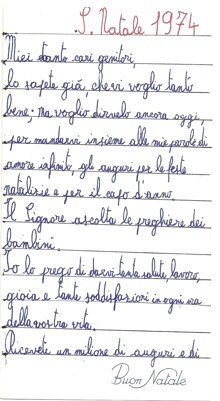 S. Natale 1974
Miei tanto cari genitori,
Lo sapete già, che vi voglio tanto
bene; ma voglio dirvelo ancora oggi,
per mandarvi insieme alle mie parole di
amore infinito, gli auguri per le feste
natalizie e per il capo d'anno.
Il Signore ascolta le preghiere dei
bambini.
Io lo prego di darvi tanta salute, lavoro,
gioia e tante soddisfazioni in ogni ora
della vostra vita.
Ricevete un milione di auguri e di
Buon Natale